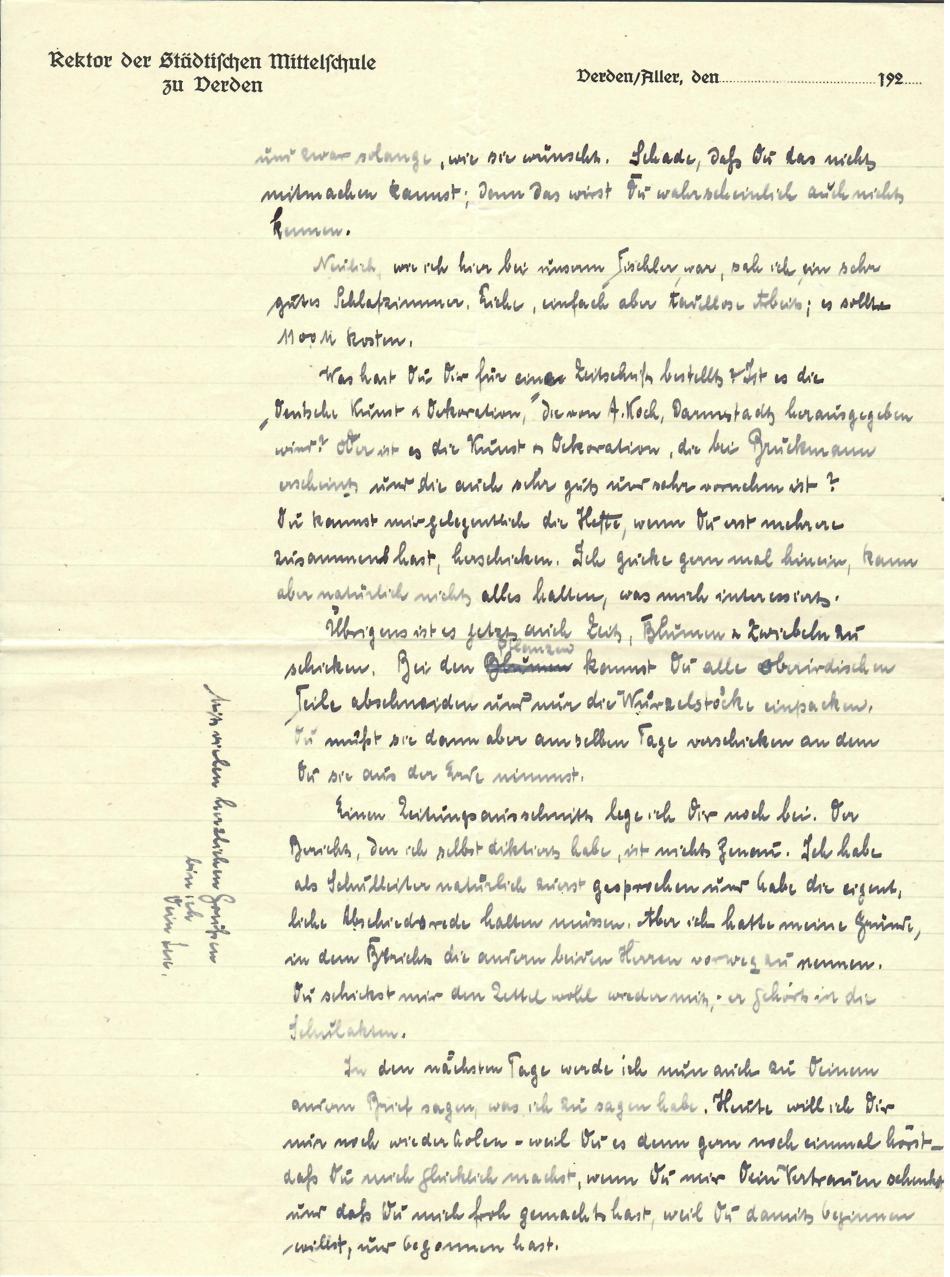 Rektor der Städtischen Mittelschule
zu Verden
Verden/Aller, den 192
und zwar solange, wie sie wünscht. Schade, daß Du das nicht
mitmachen kannst; denn das wirst Du wahrscheinlich auch nicht
kennen.
Neulich, wie ich hier bei unserm Tischler war, sah ich ein sehr
gutes Schlafzimmer. Eiche, einfach aber tadellose Arbeit; es sollte
1100 M kosten.
Was hast Du Dir für eine Zeitschrift bestellt? Ist es die
„Deutsche Kunst & Dekoration," die von A. Koch, Darmstadt herausgegeben
wird? Oder ist es die Kunst & Dekoration, die bei Bruckmann
erscheint und die auch sehr gut und sehr vornehm ist?
Du kannst mir gelegentlich die Hefte, wenn Du erst mehrere
zusammen hast, herschicken. Ich gucke gern mal hinein, kann
aber natürlich nicht alles halten, was mich interessiert.
Übrigens ist es jetzt auch Zeit, Blumen & Zwiebeln zu
schicken. Bei den Blumen Pflanzen kannst Du alle oberirdischen
Teile abschneiden und nur die Wurzelstöcke einpacken.
Du mußt sie dann aber am selben Tage verschicken an dem
Du sie aus der Erde nimmst.
Einen Zeitungsausschnitt lege ich Dir noch bei. Der
Bericht, den ich selbst diktiert habe, ist nicht genau. Ich habe
als Schulleiter natürlich zuerst gesprochen und habe die eigent-
liche Abschiedsrede halten müssen. Aber ich hatte meine Gründe,
in dem Bericht die andern beiden Herren vorweg zu nennen.
Du schickst mir den Zettel wohl wieder mit,- er gehört in die
Schulakten.
In den nächsten Tage werde ich nun auch zu Deinem
andern Brief sagen, was ich zu sagen habe. Heute will ich Dir
nur noch wiederholen - weil Du es denn gern noch einmal hörst -
daß Du mich glücklich machst, wenn Du mir Dein Vertrauen schenkst
und daß Du mich froh gemacht hast, weil Du damit beginnen
willst, und begonnen hast.
Mit vielen herzlichen Grüßen
bin ich
Dein